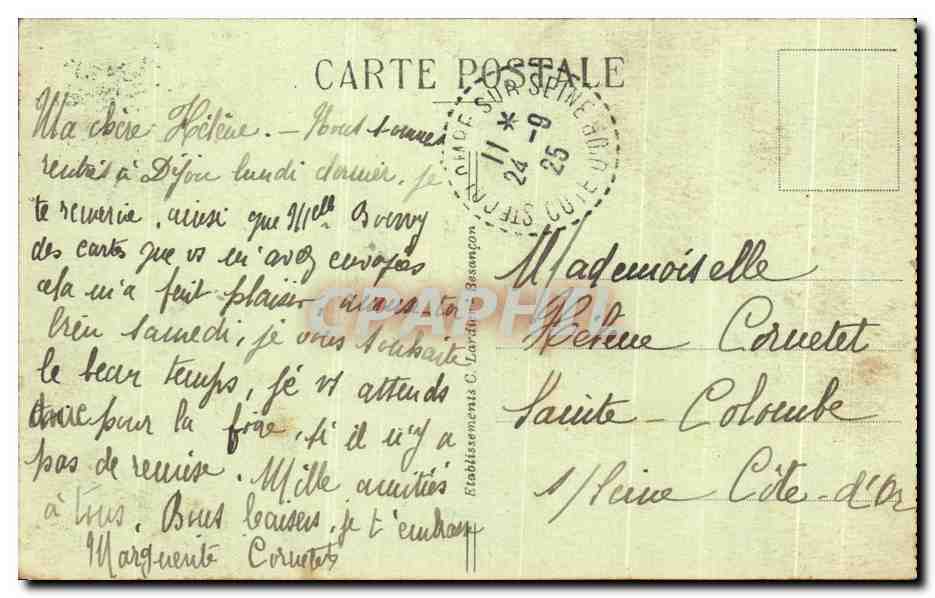 CARTE POSTALE
Ma chère Hélène. - Nous sommes
rentrés à Dijon lundi dernier, je
te remercie, ainsi que Melle
des cartes que vs m'avez envoyées
cela m'a fait plaisir
bien samedi, je vous souhaite
le beau temps, je vs attends
donc pour la foire, si il n'y a
pas de remise. Mille amitiés
à tous, Bons baisers, je t'embrasse
Marguerite Cornetet
STE COLOMBE-SUR-SEINE CÔTE D'OR
11 *
24 -9
25
Etablissements C. Lardier - Besançon
Mademoiselle
Hélène Cornetet
Sainte-Colombe
s/Seine Côte-d'Or
CPAPHIL